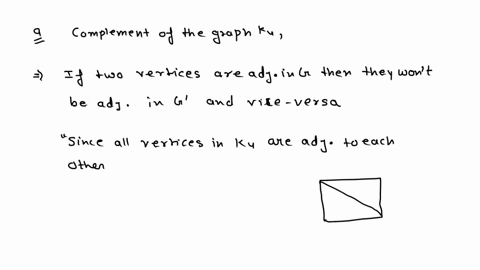 Q Complement of the graph K4,
⇒ If two vertices are adj. in G then they won't
be adj. in G' and vise-versa
"Since all vertices in K4 are adj. to each
other